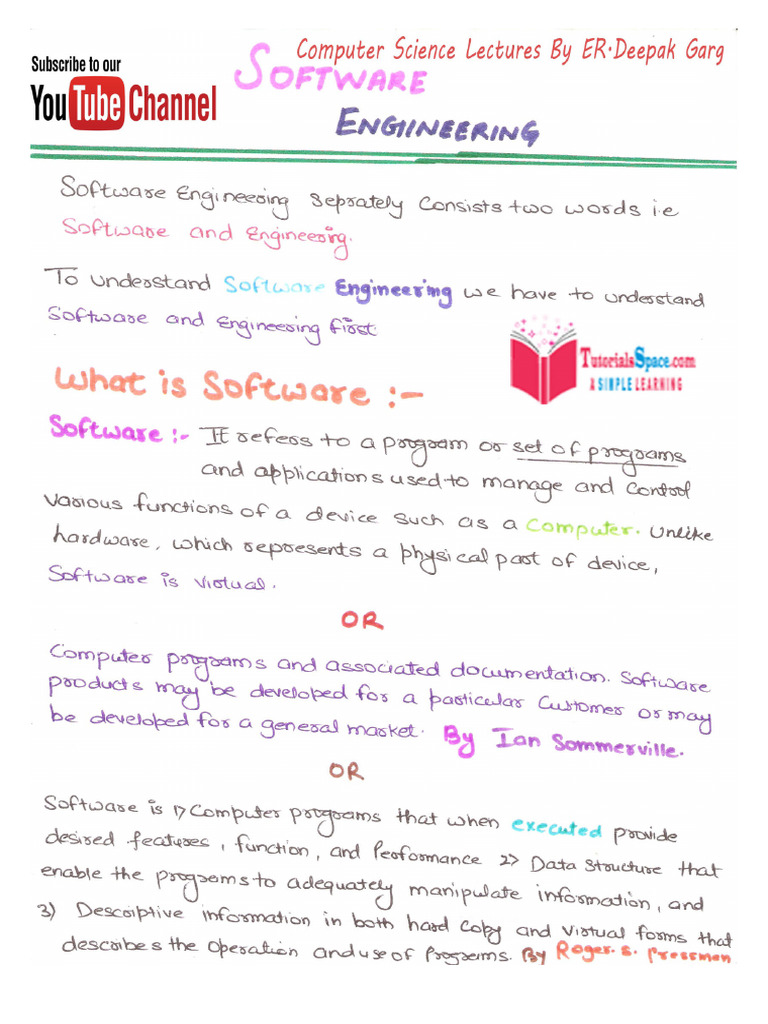 Computer Science Lectures By ER.Deepak Garg
Subscribe to our
YouTube Channel
SOFTWARE
ENGIINEERING
Software Engineering Seprately Consists two words i.e
Software and Engineering.
To understand Software Engineering we have to understand
Software and Engineering first.
TutorialsSpace.com
A SIMPLE LEARNING
What is Software :-
Software :- It refers to a program or set of programs
and applications used to manage and control
various functions of a device such as a Computer. Unlike
hardware, which represents a physical part of device,
Software is virtual.
OR
Computer programs and associated documentation. Software
products may be developed for a particular Customer or may
be developed for a general market. By Ian Sommerville.
OR
Software is 1) Computer programs that when executed provide
desired features, function, and Performance 2) Data Structure that
enable the programs to adequately manipulate information, and
3) Descriptive information in both hard Copy and virtual forms that
describes the Operation and use of Programs. By Roger. S. Pressman